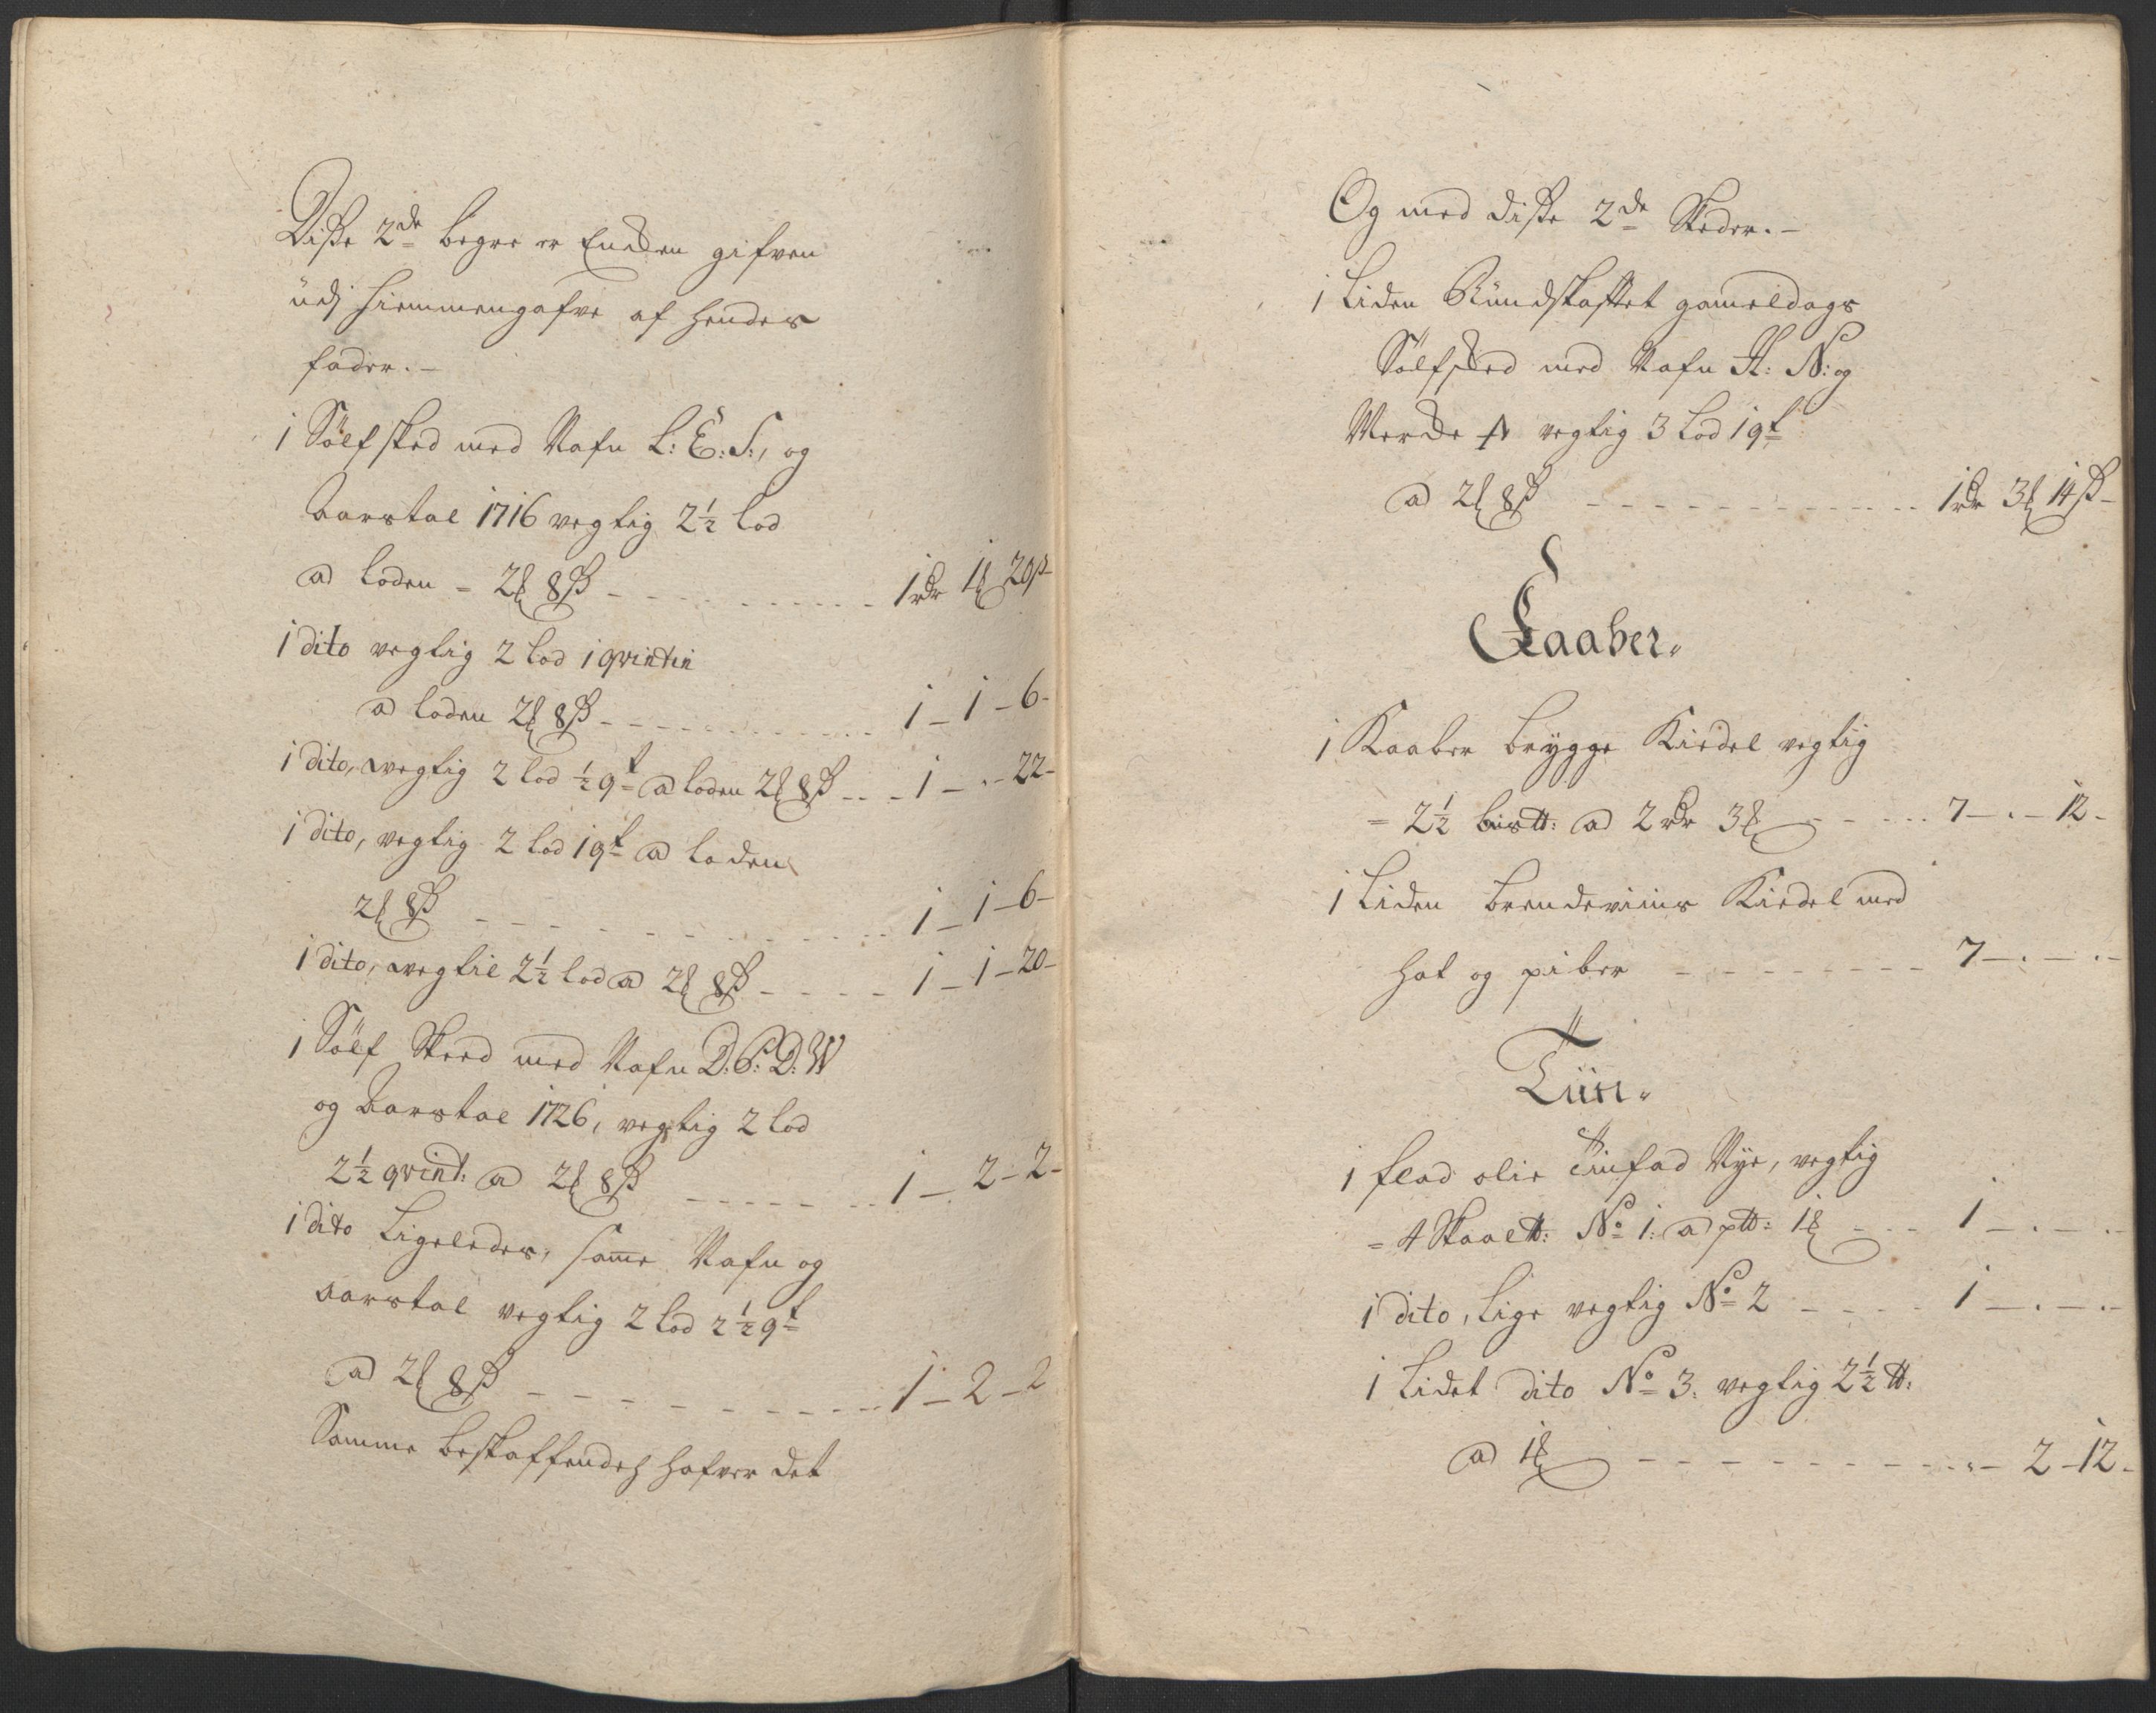 Disse 2de begre er Enken gifven
udj Hiemmengafve af Hendes
fader.-
1 Sölf sked med Nafn L: E: S:, og
Aarstal 1716 vegtig 2½ lod
a loden = 2 8 ß - - - 1 rdr 1 20 ß
1 dito vegtig 2 lod 1 qvintin
a loden 2 8 ß - - - 1 - 1 - 6 -
1 dito, vegtig 2 lod ½ qt a loden 2 8 ß - - - 1 - . - 22 -
1 dito, vegtig 2 lod 1 qt a loden
2 8 ß - - - 1 - 1 - 6 -
1 dito, vegtil 2½ lod a 2 8 ß - - - 1 - 1 - 20 -
1 Sölf Skeed med Nafn D: P: D: W
og Aarstal 1726, vegtig 2 lod
2½ qvint: a 2 8 ß - - - 1 - 2 - 2 -
1 dito Ligeledes, samme Nafn og
aarstal vegtig 2 lod 2½ qt
a 2 8 ß - - - 1 - 2 - 2
Samme beskaffendhed hafver det
Og med disse 2de Skeder.-
1 Liden Rundskaftet gameldags
Sölfsked med Nafn H: N: og
Merke vegtig 3 Lod 1 qt
a 2 8 ß - - - 1 rdr 3 14 ß -
Kaaber.
1 Kaaber brygge Kiedel vegtig
= 2½ bis ℔: a 2 rdr 3 - - - 7 - . - 12 -
1 Liden brendeviins Kiedel med
hat og piber - - - 7 - . - . -
Tiin.
1 flad olie Tinfad Nye, vegtig
= 4 Skaal ℔: No 1: a p ℔: 1 - - - 1 - . - . -
1 dito, Lige vegtig No 2 - - - 1 - . - . -
1 Lidet dito No 3: vegtig 2½ ℔:
a 1 - - - 2 - 12 -